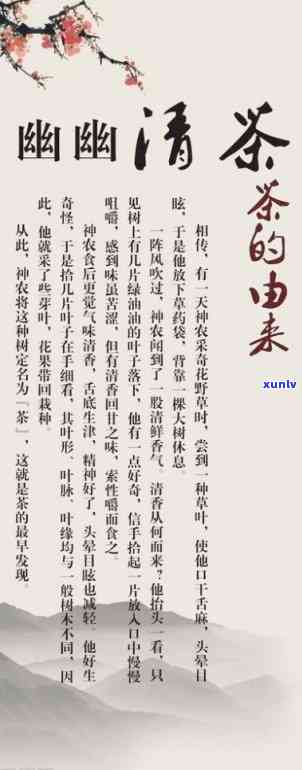 幽幽清茶
茶的由来
相传,有一天神农采奇花野草时,尝到一种草叶,使他口干舌麻,头晕目
眩,于是他放下草药袋,背靠一棵大树休息。
一阵风吹过,神农闻到了一股清鲜香气。清香从何而来?他抬头一看,只
见树上有几片绿油油的叶子落下,他有一点好奇,信手拾起一片放入口中慢慢
咀嚼,感到味虽苦涩,但有清香回甘之味,索性嚼而食之。
神农食后更觉气味清香,舌底生津,精神好了,头晕目眩也减轻。他好生
奇怪,于是拾几片叶子在手细看,其叶形。叶脉、叶缘均与一般树木不同,因
此,他就采了些芽叶,花果带回栽种。
从此,神农将这种树定名为『茶』,这就是茶的最早发现。
xunlv